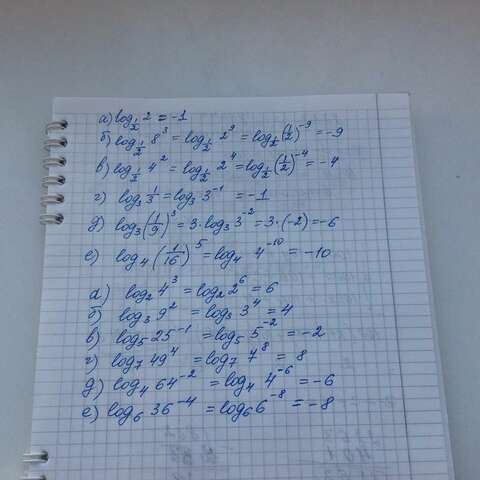 а) log_{1/2} 2 = -1
б) log_{1/2} 8^3 = log_{1/2} 2^9 = log_{1/2} (1/2)^{-9} = -9
в) log_{1/2} 4^2 = log_{1/2} 2^4 = log_{1/2} (1/2)^{-4} = -4
г) log_3 1/3 = log_3 3^{-1} = -1
д) log_3 (1/9)^3 = 3·log_3 3^{-2} = 3·(-2) = -6
е) log_4 (1/16)^5 = log_4 4^{-10} = -10
а) log_2 4^3 = log_2 2^6 = 6
б) log_3 9^2 = log_3 3^4 = 4
в) log_5 25^{-1} = log_5 5^{-2} = -2
г) log_7 49^4 = log_7 7^8 = 8
д) log_4 64^{-2} = log_4 4^{-6} = -6
е) log_6 36^{-4} = log_6 6^{-8} = -8